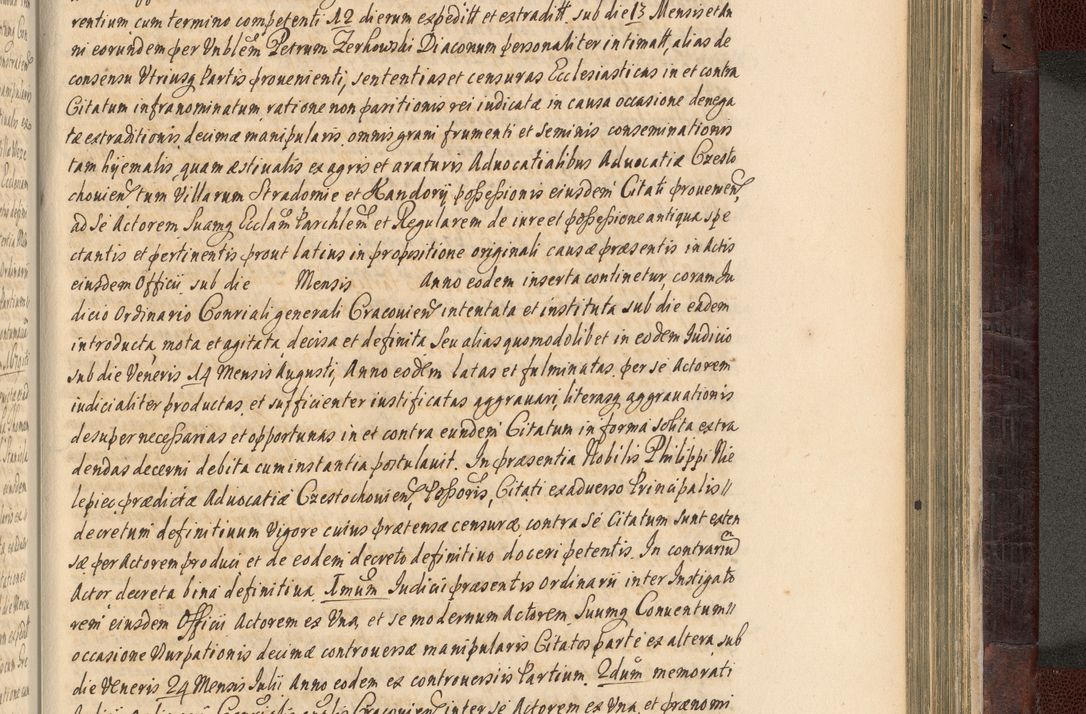 rentium cum termino competenti 12 dierum expeditt et extraditt sub die 13 Mensis et An
ni eorundem per Vnblem Petrum Zerkowski Diaconum personaliter intimatt, alias de
consensu Vtriusq Partis provenienti, sententias et censuras Ecclesiasticas in et contra
Citatum infranominatum ratione non paritionis rei iudicatæ in causa occasione denega
tæ extraditionis decimæ manipularis omnis grani frumenti et seminis conseminationis
tam hyemalis quam æstivalis ex agris et araturis Advocatialibus Advocatiæ Czesto
chovien tum Villarum Stradomie et Kandorÿ possessionis eiusdem Citati provenien,
ad se Actorem Suamq Ecclam Parchlem et Regularem de iure et possessione antiqua spe
ctantis et pertinentis prout latius in propositione originali causæ præsentis in Actis
eiusdem Officii sub die Mensis Anno eodem inserta continetur, coram Ju
dicio Ordinario Consriali generali Cracovien intentata et instituta sub die eadem
introducta mota et agitata, decisa et definita seu alias quomodolibet in eodem Iudicio
sub die Veneris 14 Mensis Augusti, Anno eodem latas et fulminatas per se Actorem
iudicialiter productas et sufficienter iustificatas aggravari, literasq aggravationis
desuper necessarias et opportunas in et contra eundem Citatum in forma solita extra
dendas decerni debita cum instantia postulavit. In præsentia Nobilis Philippi Nie
lepiec prædictæ Advocatiæ Czestochovien, Possoris, Citati ex adverso Principalis //
decretum definitivum Vigore cuius prætensæ censuræ contra se Citatum sunt exten
sæ per Actorem produci et de eodem decreto definitivo doceri petentis. In contrarium
Actor decreta bina definitiva. Imum Iudicii præsentis Ordinarii inter Instigato
rem eiusdem Officii Actorem ex Vna, et se modernum Actorem, Suumq Conventum //
occasione Vurpationis decimæ controversæ manipularis Citatos parte ex altera, sub
die Veneris 24 Mensis Iulii Anno eodem ex controversiis Partium. 2dum memorati
Cracovien inter se Actorem ex Vna, et prænomi